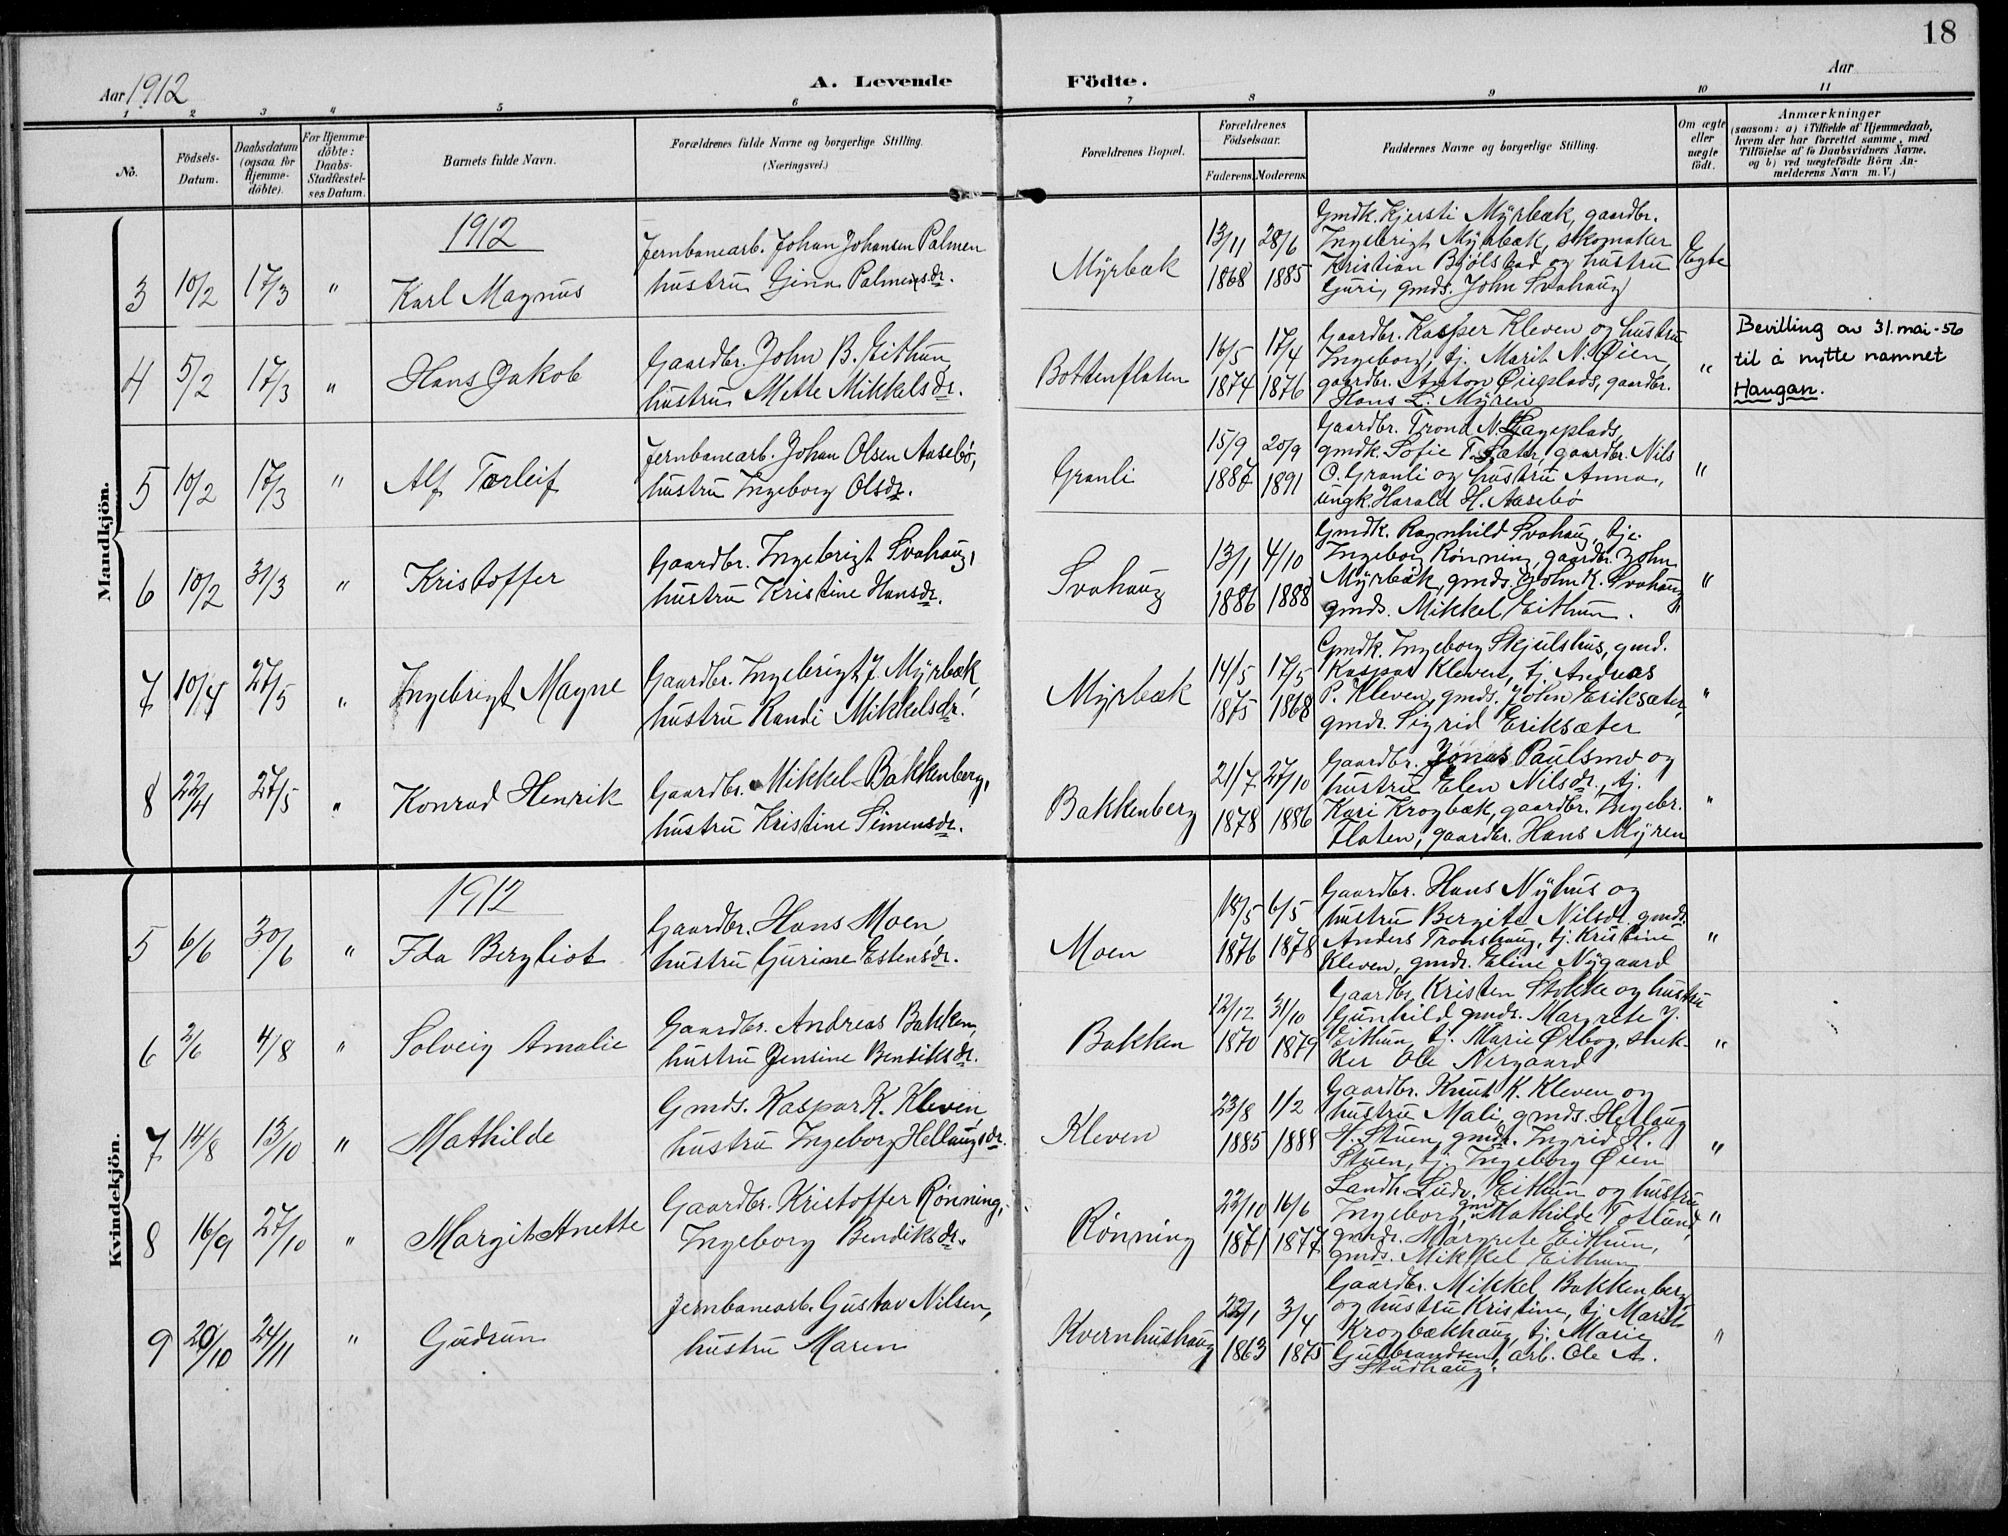 18
Aar 1912
A. Levende Födte.
Aar
1 2 3 4 5 6 7 8 9 10 11
No.
Födsels-Datum.
Daabsdatum (ogsaa for Hjemme-döbte).
For Hjemme-döbte: Daabs-Stadfæstel-ses Datum.
Barnets fulde Navn.
Forældrenes fulde Navne og borgerlige Stilling.
(Næringsvei.)
Forældrenes Bopæl.
Forældrenes Födselsaar.
Faderens. Moderens.
Faddernes Navne og borgerlige Stilling.
Om ægte eller uægte födt.
Anmærkninger
(saasom: a) i Tilfælde af Hjemmedaab,
hvem der har forrettet samme, med
Tilföielse af to Daabsvidners Navne,
og b) ved uægtefödte Börn An-
melderens Navn m. V.)
Mandkjön.
1912
3 10/2 17/3 " Karl Magnus
Jernbanearb. Johan Johansen Palmen
hustru Gina Palmensdr.
Myrbæk
13/11 28/6
1868 1885
Gmdk. Kjersti Myrbæk, gaardbr.
Ingebrigt Myrbæk, skomaker
Kristian Bjølstad og hustru
Guri, gmds. John Svahaug
Egte
4 5/2 17/3 " Hans Jakob
Gaardbr. John B. Eithun,
hustru Mette Mikkelsdr.
Bottenflaten
16/5 17/4
1874 1876
Gaardbr. Kasper Kleven og hustru
Ingeborg, tj. Marit N. Øien,
gaardbr. Anton Øieplads, gaardbr.
Hans L. Myren
"
Bevilling av 31. mai -56
til å nytte namnet
Haugan.
5 10/2 17/3 " Alf Torleif
Jernbanearb. Johan Olsen Aasebö,
hustru Ingeborg Olsdr.
Granli
15/9 20/9
1887 1891
Gaardbr. Trond N. Hageplads,
gmdk. Sofie T. Sæter, gaardbr. Nils
O. Granli og hustru Anna,
ungk. Harald H. Aasebö
"
6 10/2 31/3 " Kristoffer
Gaardbr. Ingebrigt Svahaug,
hustru Kristine Hansdr.
Svahaug
13/1 4/10
1886 1888
Gmdk. Ragnhild Svahaug, tje.
Ingeborg Rønning, gaardbr. John
Myrbæk, gmds. John K. Svahaug,
gmds. Mikkel Eithun.
"
7 10/4 27/5 " Ingebrigt Magne
Gaardbr. Ingebrigt J. Myrbæk,
hustru Randi Mikkelsdr.
Myrbæk
14/5 17/5
1875 1868
Gmdk. Ingeborg Skjulshus, gmd.
Kaspar Kleven, tj. Andreas
P. Kleven, gmds. John Eriksæter,
gmdr. Sigrid Eriksæter
"
8 22/4 27/5 " Konrad Henrik
Gaardbr. Mikkel Bakkenberg,
hustru Kristine Simensdr.
Bakkenberg
21/7 27/10
1878 1886
Gaardbr. Jonas Paulsmo og
hustru Elen Nilsdr., tj.
Kari Krogbæk, gaardbr. Ingebr.
Flaten, gaardbr. Hans Myren
"
Kvindekjön.
1912
5 6/6 30/6 " Ida Bergliot
Gaardbr. Hans Moen,
hustru Gurine Estensdr.
Moen
18/5 6/5
1876 1878
Gaardbr. Hans Nyhus og
hustru Bergite Nilsdr. gmds.
Anders Tronshaug, tj. Kristine
Kleven, gmdr. Eline Nygaard
"
6 2/6 4/8 " Solveig Amalie
Gaardbr. Andreas Bakken,
hustru Jensine Bendiksdr.
Bakken
12/12 31/10
1870 1879
Gaardbr. Kristen Stokke og hustru
Gunhild gmds. Margrete J.
Eithun, tj. Marie Ørbog, snek-
ker Ole Nergaard
"
7 14/8 13/10 " Mathilde
Gmds. Kaspar K. Kleven
hustru Ingeborg Hellaugsdr.
Kleven
23/8 1/2
1885 1888
Gaardbr. Knut K. Kleven og
hustru Mali, gmds. Hellaug
H. Stuen, gmdr. Ingrid H.
Stuen, tj. Ingeborg Øien
"
8 16/9 27/10 " Margit Anette
Gaardbr. Kristoffer Rønning,
Ingeborg Bendiksdr.
Rønning
22/10 16/6
1871 1877
Landh. Ludv. Eithun og hustru
Ingeborg, gmd. Mathilde Totland,
gmdr. Margrete Eithun,
gmds. Mikkel Eithun
"
9 20/10 24/11 " Gudrun
Jernbanearb. Gustav Nilsen,
hustru Maren
Kvernhushaug
22/1 3/4
1863 1875
Gaardbr. Mikkel Bakkenberg
og hustru Kristine, tj. Marit
Krogbækhaug, tj. Marie
Gulbrandsen, arb. Ole A.
Studhaug.
"